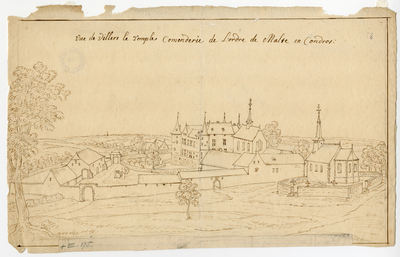 Vue de Villers le Temple Comenderie de L'ordre de Malte en Condros.